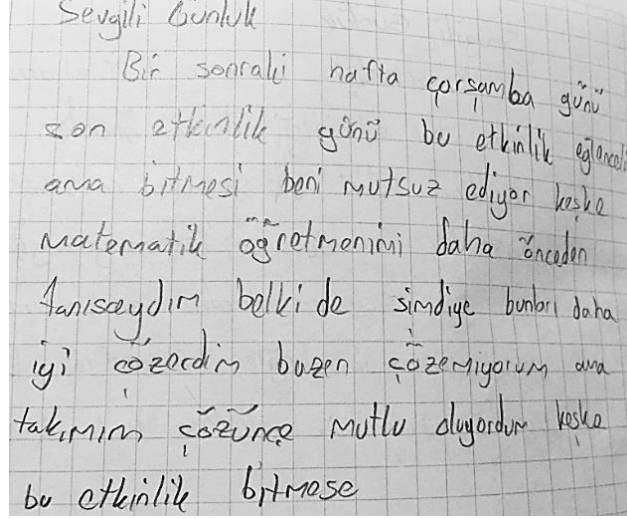 Sevgili Günlük
Bir sonraki hafta çarşamba günü
son etkinlik günü bu etkinlik eğlenceli
ama bitmesi beni mutsuz ediyor keşke
matematik öğretmenimi daha önceden
tanısaydım belki de simdiye bunları daha
iyi çözerdim bazen çözemiyorum ama
takımım çözünce mutlu oluyordum keşke
bu etkinlik bitmese